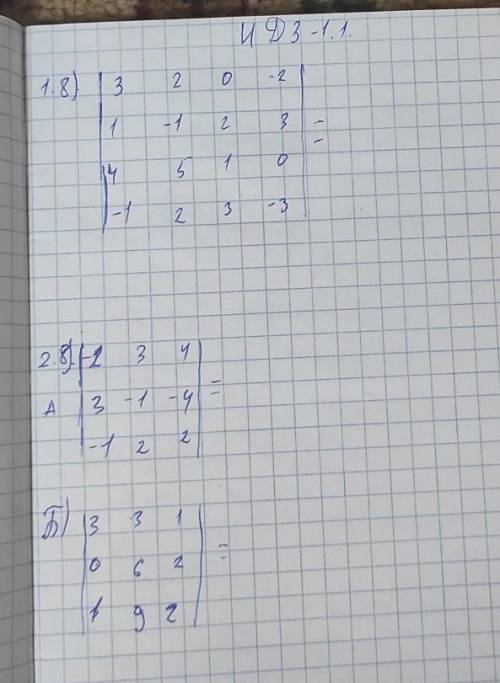 ИДЗ-1.1.
1.8) | 3 2 0 -2 |
| 1 -1 2 3 | =
| 4 5 1 0 |
| -1 2 3 -3 |
2.8) | 3 4 |
А | 3 -1 -4 | =
| -1 2 2 |
Б) | 3 3 1 |
| 0 6 2 | =
| 1 9 2 |